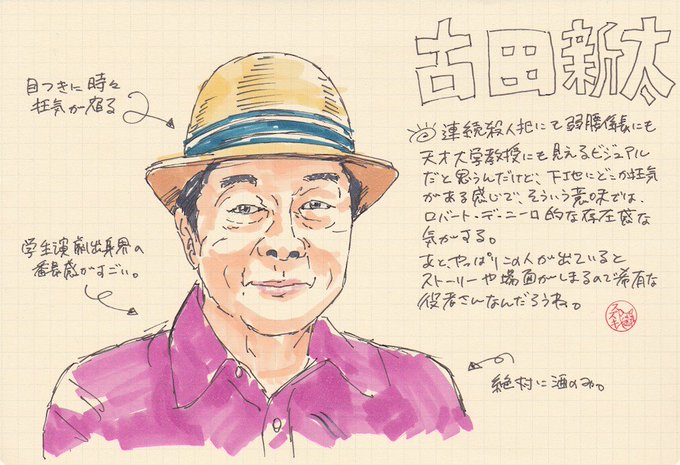 古田新太
目つきに時々
狂気が宿る
連続殺人犯にも弱腰係長にも
天才大学教授にも見えるビジュアル
だと思うんだけど、下地にどこか狂気
がある感じで、そういう意味では、
ロバート・デ・ニーロ的な存在感な
気がする。
あと、やっぱりこの人が出ていると
ストーリーや場面がしまるので希有な
役者さんなんだろうね。
学生演劇出身界の
番長感がすごい。
絶対に酒のみ。